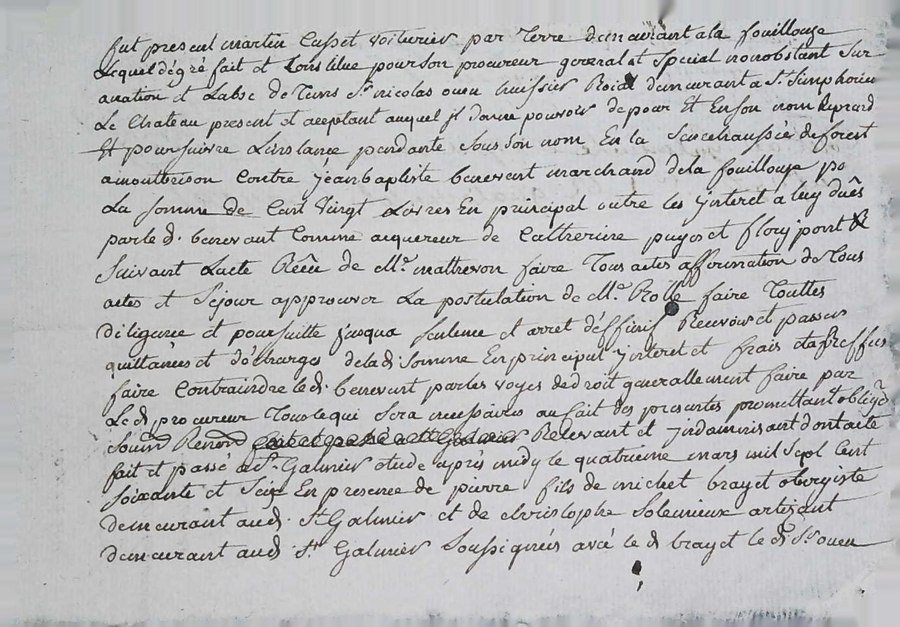 fut present martin Cusset voiturier par Terre demeurant a la fouillouse
Lequel de gré fait et Constitue pour son procureur general et special nonobstant Sur
anation et Labse de Tems Sr. nicolas ouen huissier Roial demeurant a St. Simphorien
Le Chateau present et aceptant auquel jl donne pouvoir de pour Et En son nom
Et poursuivre Linstance pendante sous son nom En la Senechaussée de forest
a montbrison Contre jean baptiste benevent marchand de la fouillouse po
La somme de Cent Vingt Livres En principal outre les jnteret a luy dûes
par le d. benevent Comme aquereur de Catherine puyet et flory pont
Suivant Lacte Rêcu de Me. mathevon faire Tous actes affirmation de Tous
actes et Sejour approuver La postulation de Me. Rolle faire Touttes
diligence et poursuitte jusqua sentence et arret déffinif Recevoir et passer
quittances et décharges de la d. somme En principal jnteret et frais et a
faire Contraindre le d. benevent par les voyes de droit generallement faire par
Le d. procureur Tout ce qui sera necessaires au fait des presentes promettant oblige
Soumd Renond Relevant et jndemnisant dont acte
fait et passé a St. Galmier etude après midy le quatrieme mars mil sept Cent
soixante et seize En presence de pierre fils de michel brayet
demeurant aud. St Galmier et de christophe artisant
demeurant aud. St Galmier soussignés avec le d brayet le d. Sr ouen